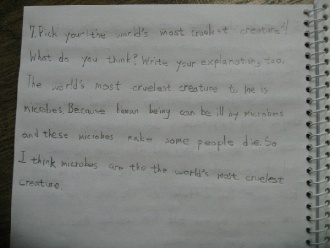 7. Pick your "the world's most cruelest creature"!
What do you think? Write your explanation, too.
The world's most cruelest creature to me is
microbes. Because human being can be ill by microbes
and these microbes make some people die. So
I think microbes are the the world's most cruelest
creature